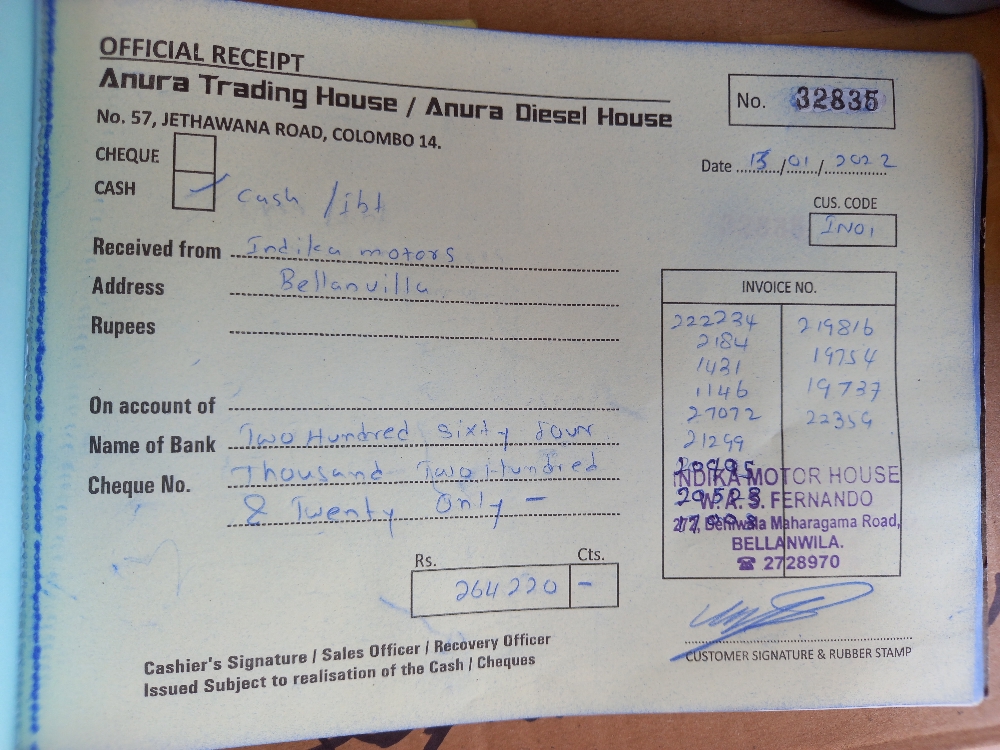 OFFICIAL RECEIPT
Anura Trading House / Anura Diesel House
No. 57, JETHAWANA ROAD, COLOMBO 14.
No. 32835
Date 13/01/2022
CHEQUE
CASH cash /ibt
CUS. CODE
IN01
Received from Indika motors
Address Bellanvilla
Rupees
On account of
Name of Bank Two Hundred sixty four
Cheque No. Thousand Two Hundred
& Twenty Only -
INVOICE NO.
222234 219816
2184 19754
1431 19737
1146 22354
27072
21299
INDIKA MOTOR HOUSE
W. A. S. FERNANDO
Maharagama Road,
BELLANWILA.
☎ 2728970
Rs. Cts.
264220 -
Cashier's Signature / Sales Officer / Recovery Officer
Issued Subject to realisation of the Cash / Cheques
CUSTOMER SIGNATURE & RUBBER STAMP